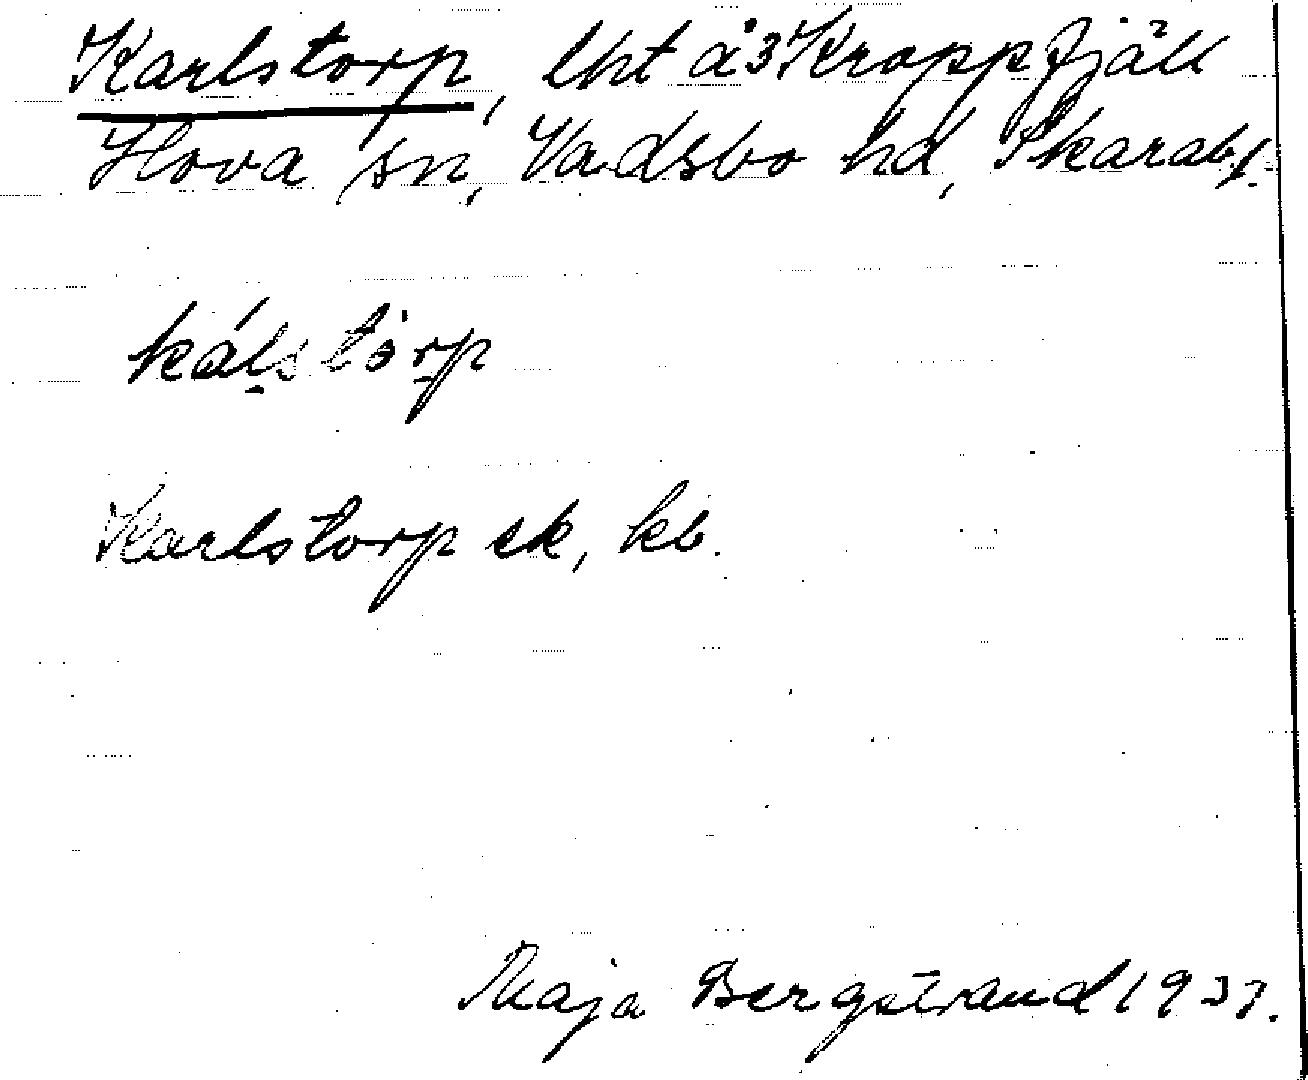 Karlstorp, lht å 3 Kroppfjäll
Hova sn, Vadsbo hd, Skarab. l.
kálstòrp
Karlstorp ek, kb.
Maja Bergstrand 1933.